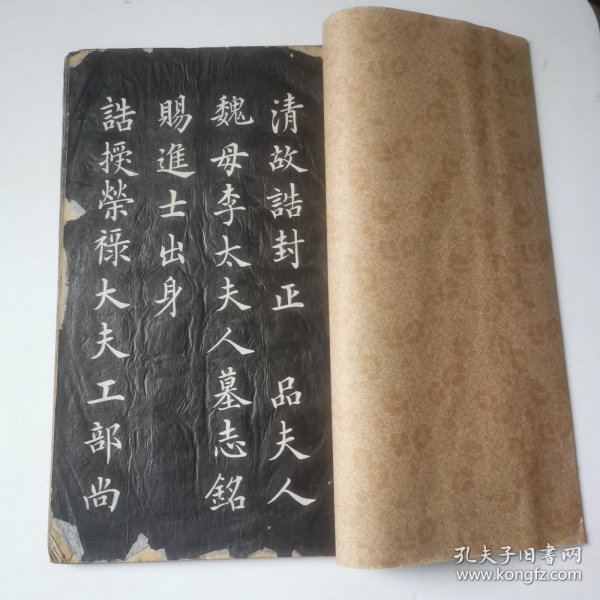 清故誥封正 品夫人
魏母李太夫人墓志銘
賜進士出身
誥授榮祿大夫工部尚
孔夫子旧书网
www.kongfz.com